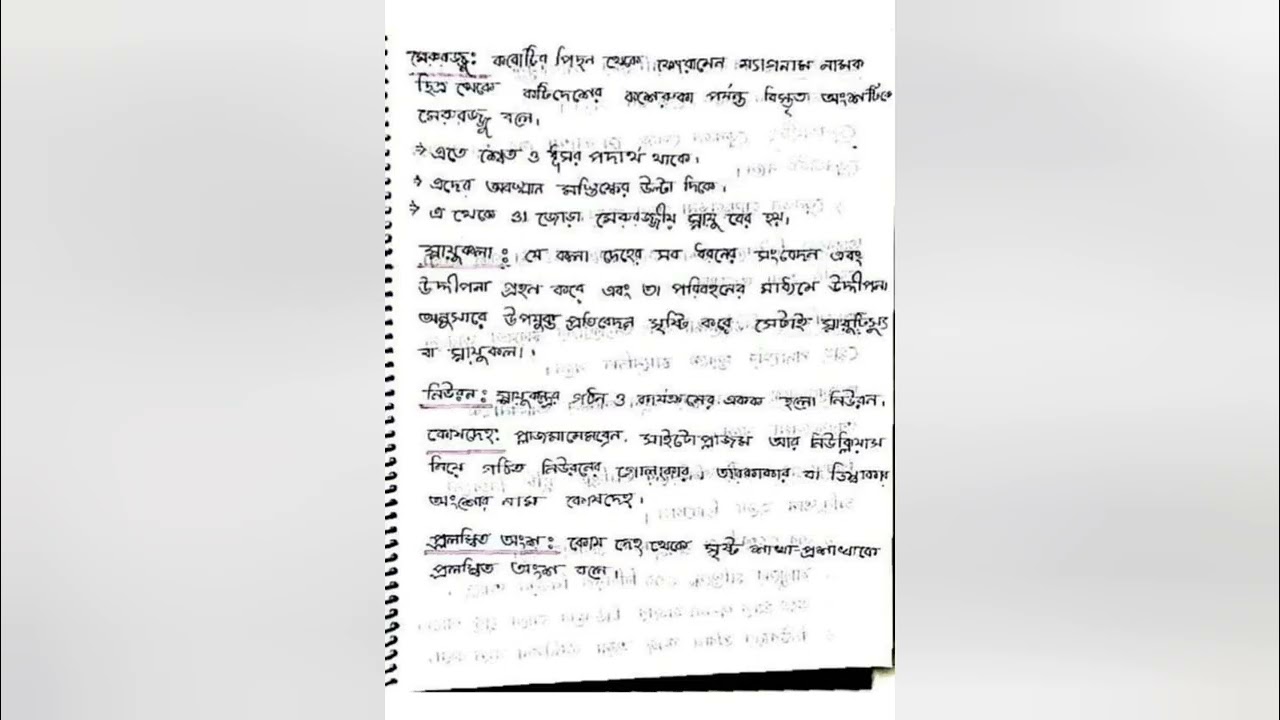 মেরুরজ্জু: করোটির পিছন থেকে ফোরামেন ম্যাগনাম নামক
ছিদ্র থেকে কটিদেশের কশেরুকা পর্যন্ত বিস্তৃত অংশটিকে
মেরুরজ্জু বলে।
→ এতে শ্বেত ও ধূসর পদার্থ থাকে।
→ এদের অবস্থান মস্তিষ্কের উল্টা দিকে।
→ এ থেকে ৩১ জোড়া মেরুরজ্জীয় স্নায়ু বের হয়।
স্নায়ুকলা: যে কলা দেহের সব ধরনের সংবেদন এবং
উদ্দীপনা গ্রহন করে এবং তা পরিবহনের মাধ্যমে উদ্দীপনা
অনুসারে উপযুক্ত প্রতিবেদন সৃষ্টি করে সেটাই স্নায়ুটিস্যু
বা স্নায়ুকলা।
নিউরন: স্নায়ুতন্ত্রের গঠন ও কার্যক্রমের একক হলো নিউরন।
কোষদেহ: প্লাজমামেমব্রেন, সাইটোপ্লাজম আর নিউক্লিয়াস
নিয়ে গঠিত নিউরনের গোলাকার, তারকাকার বা ডিম্বাকার
অংশের নাম কোষদেহ।
প্রলম্বিত অংশ: কোষ দেহ থেকে সৃষ্ট শাখা-প্রশাখাকে
প্রলম্বিত অংশ বলে।